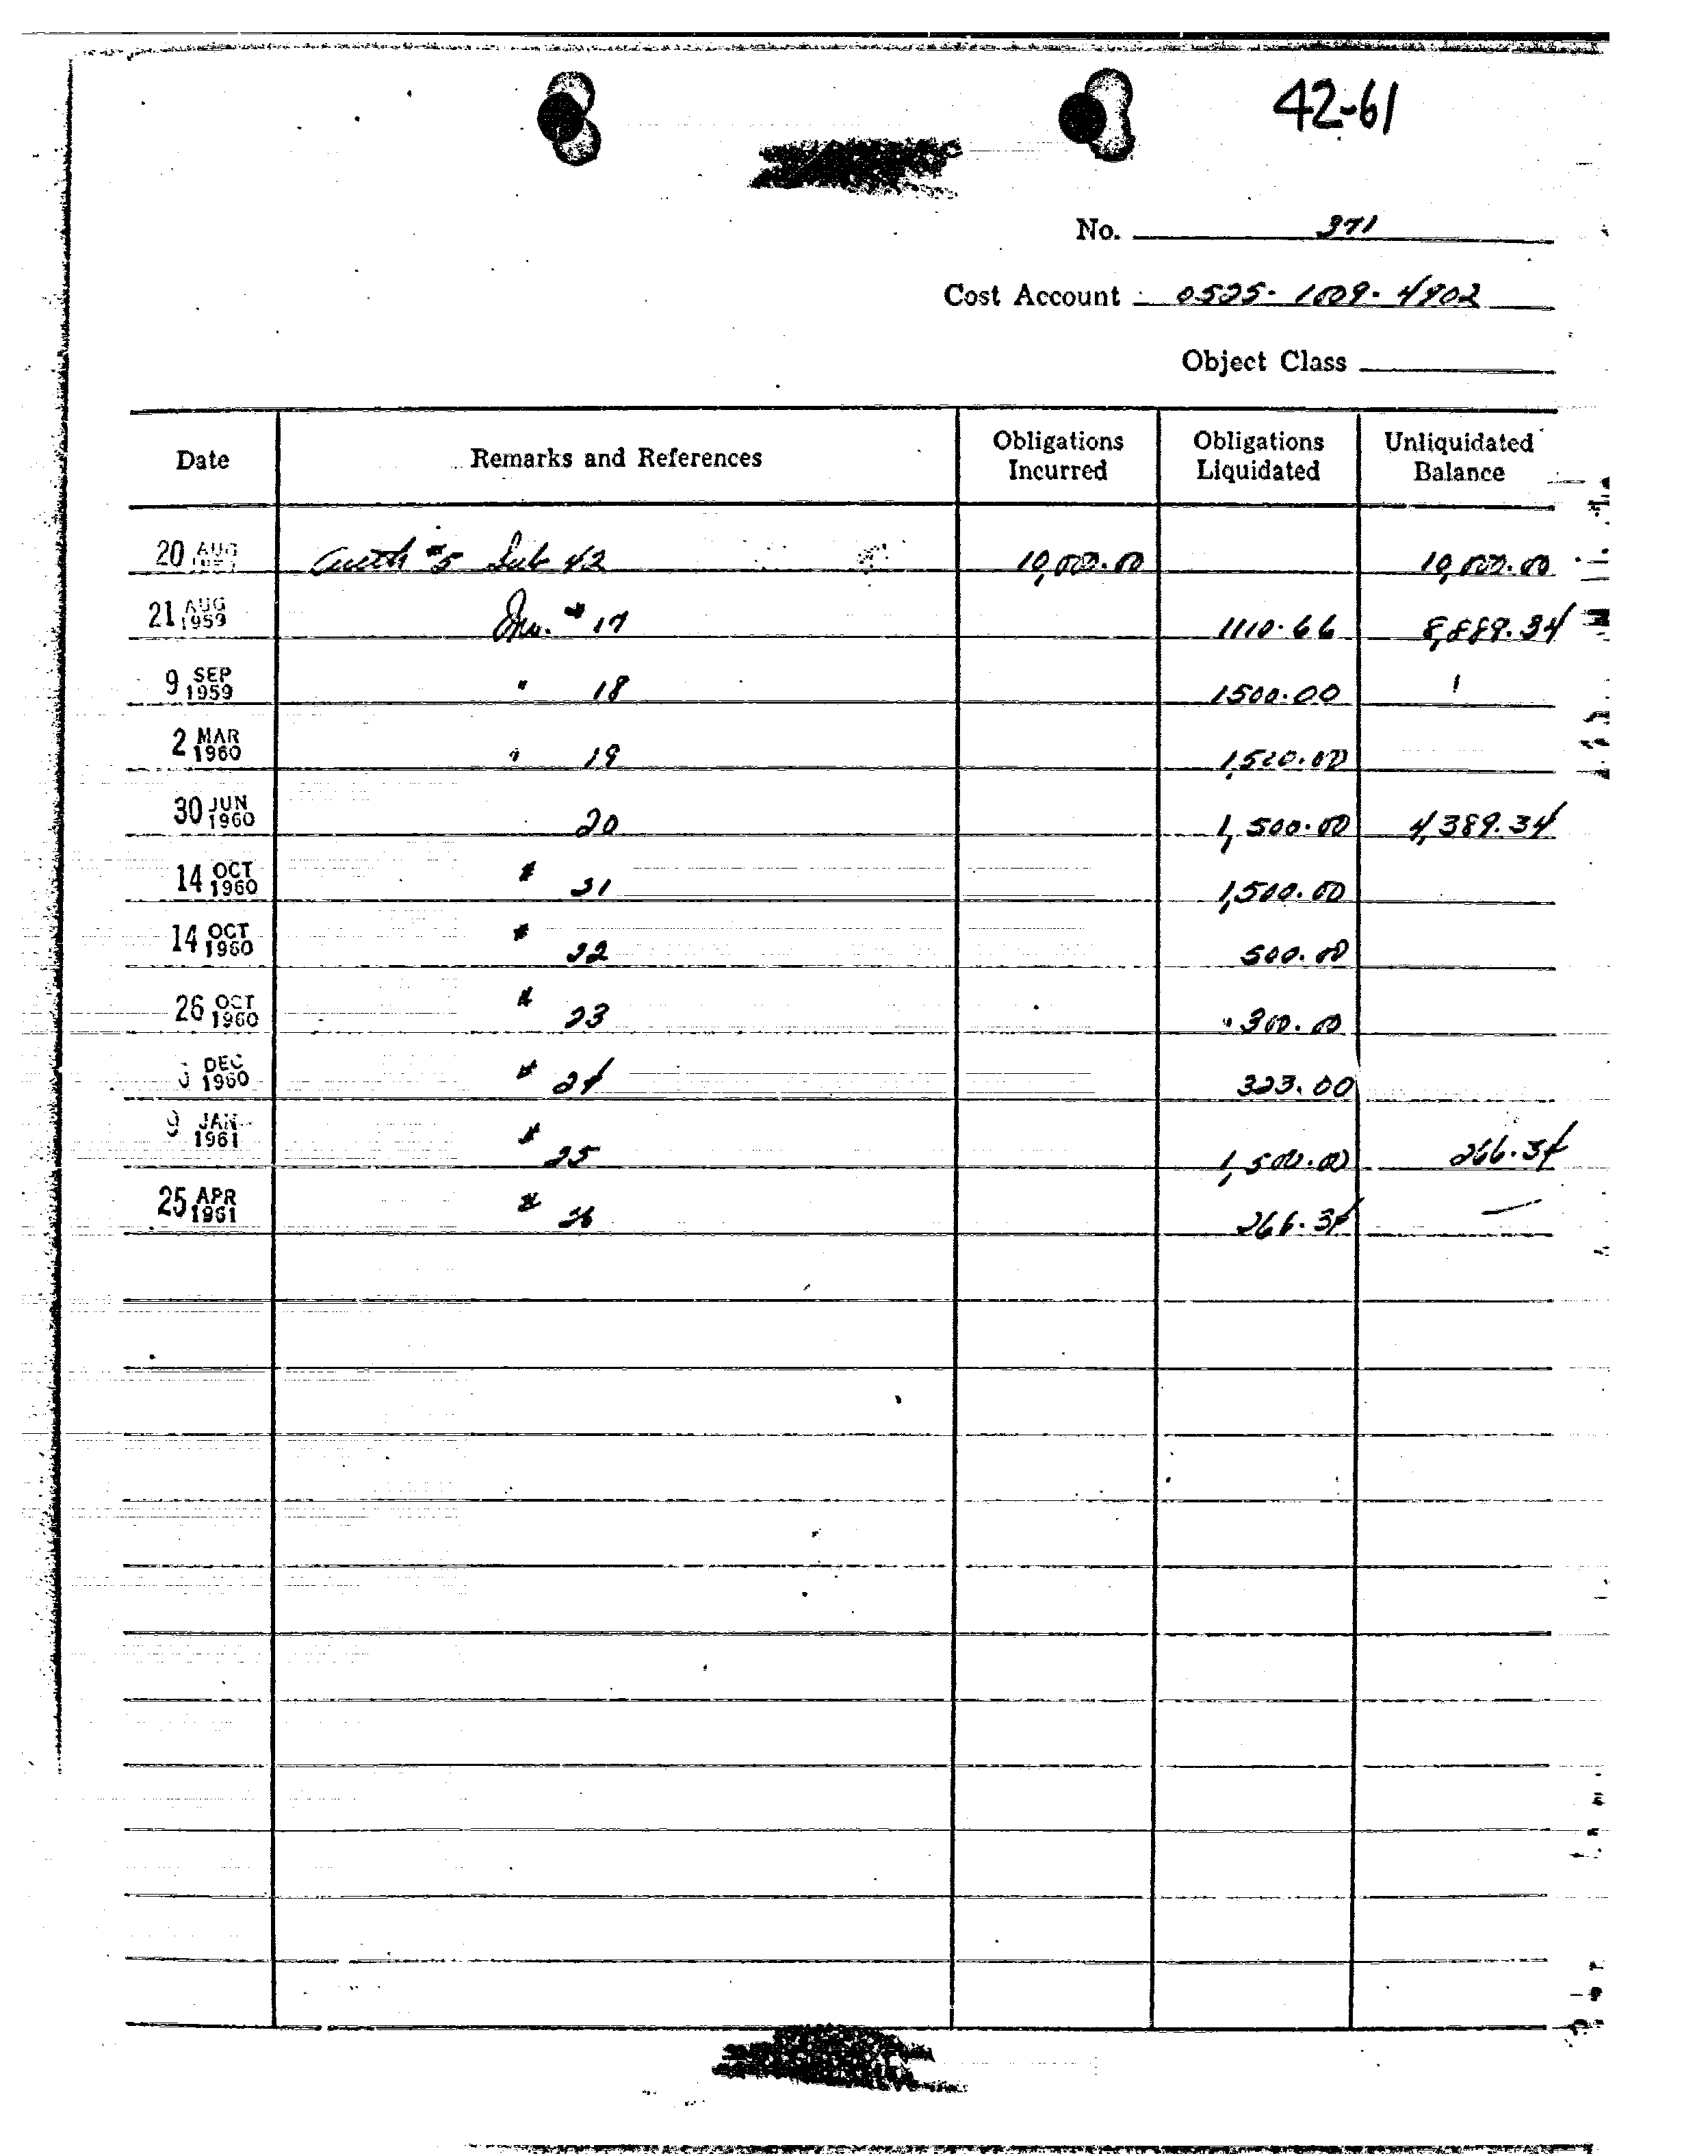 42-61
No. 371
Cost Account 0525-1009-4902
Object Class
Date Remarks and References Obligations Incurred Obligations Liquidated Unliquidated Balance
20 AUG Auth #5 Sub 42 10,000.00 10,000.00
21 AUG 1959 Inv. # 17 1110.66 8,889.34
9 SEP 1959 " 18 1500.00
2 MAR 1960 " 19 1,500.00
30 JUN 1960 20 1,500.00 4,389.34
14 OCT 1960 # 21 1,500.00
14 OCT 1960 # 22 500.00
26 OCT 1960 # 23 300.00
DEC 1960 # 24 323.00
9 JAN 1961 # 25 1,500.00 266.34
25 APR 1961 # 26 266.34 —